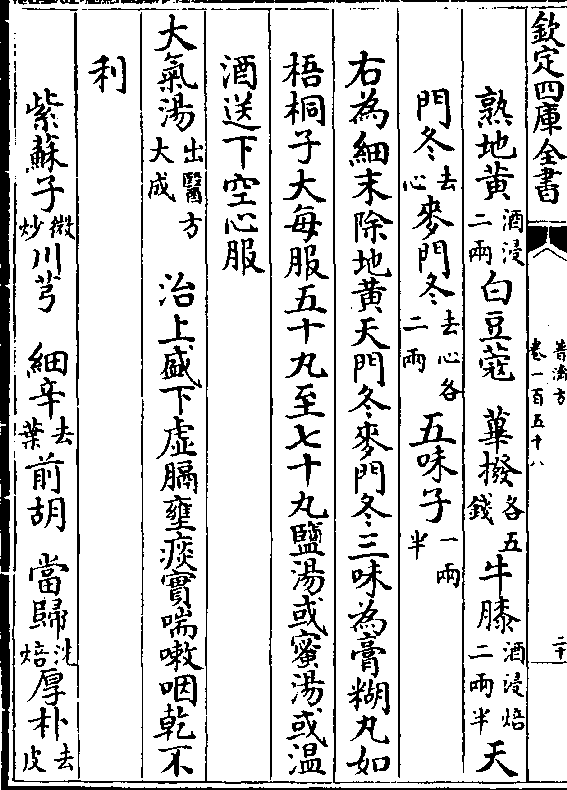 欽定四庫全書
普濟方
卷一百五十八
二十
熟地黄酒浸二兩白豆蔻 蓽撥各五錢牛膝酒浸焙二兩半天
門冬去心麥門冬去心各二兩五味子一兩半
右為細末除地黄天門冬麥門冬三味為膏糊丸如
梧桐子大每服五十丸至七十丸鹽湯或蜜湯或温
酒送下空心服
大氣湯出醫方大成 治上盛下虛膈壅痰實喘嗽咽乾不
利
紫蘇子微炒川芎 細辛去葉前胡 當歸洗焙厚朴去皮